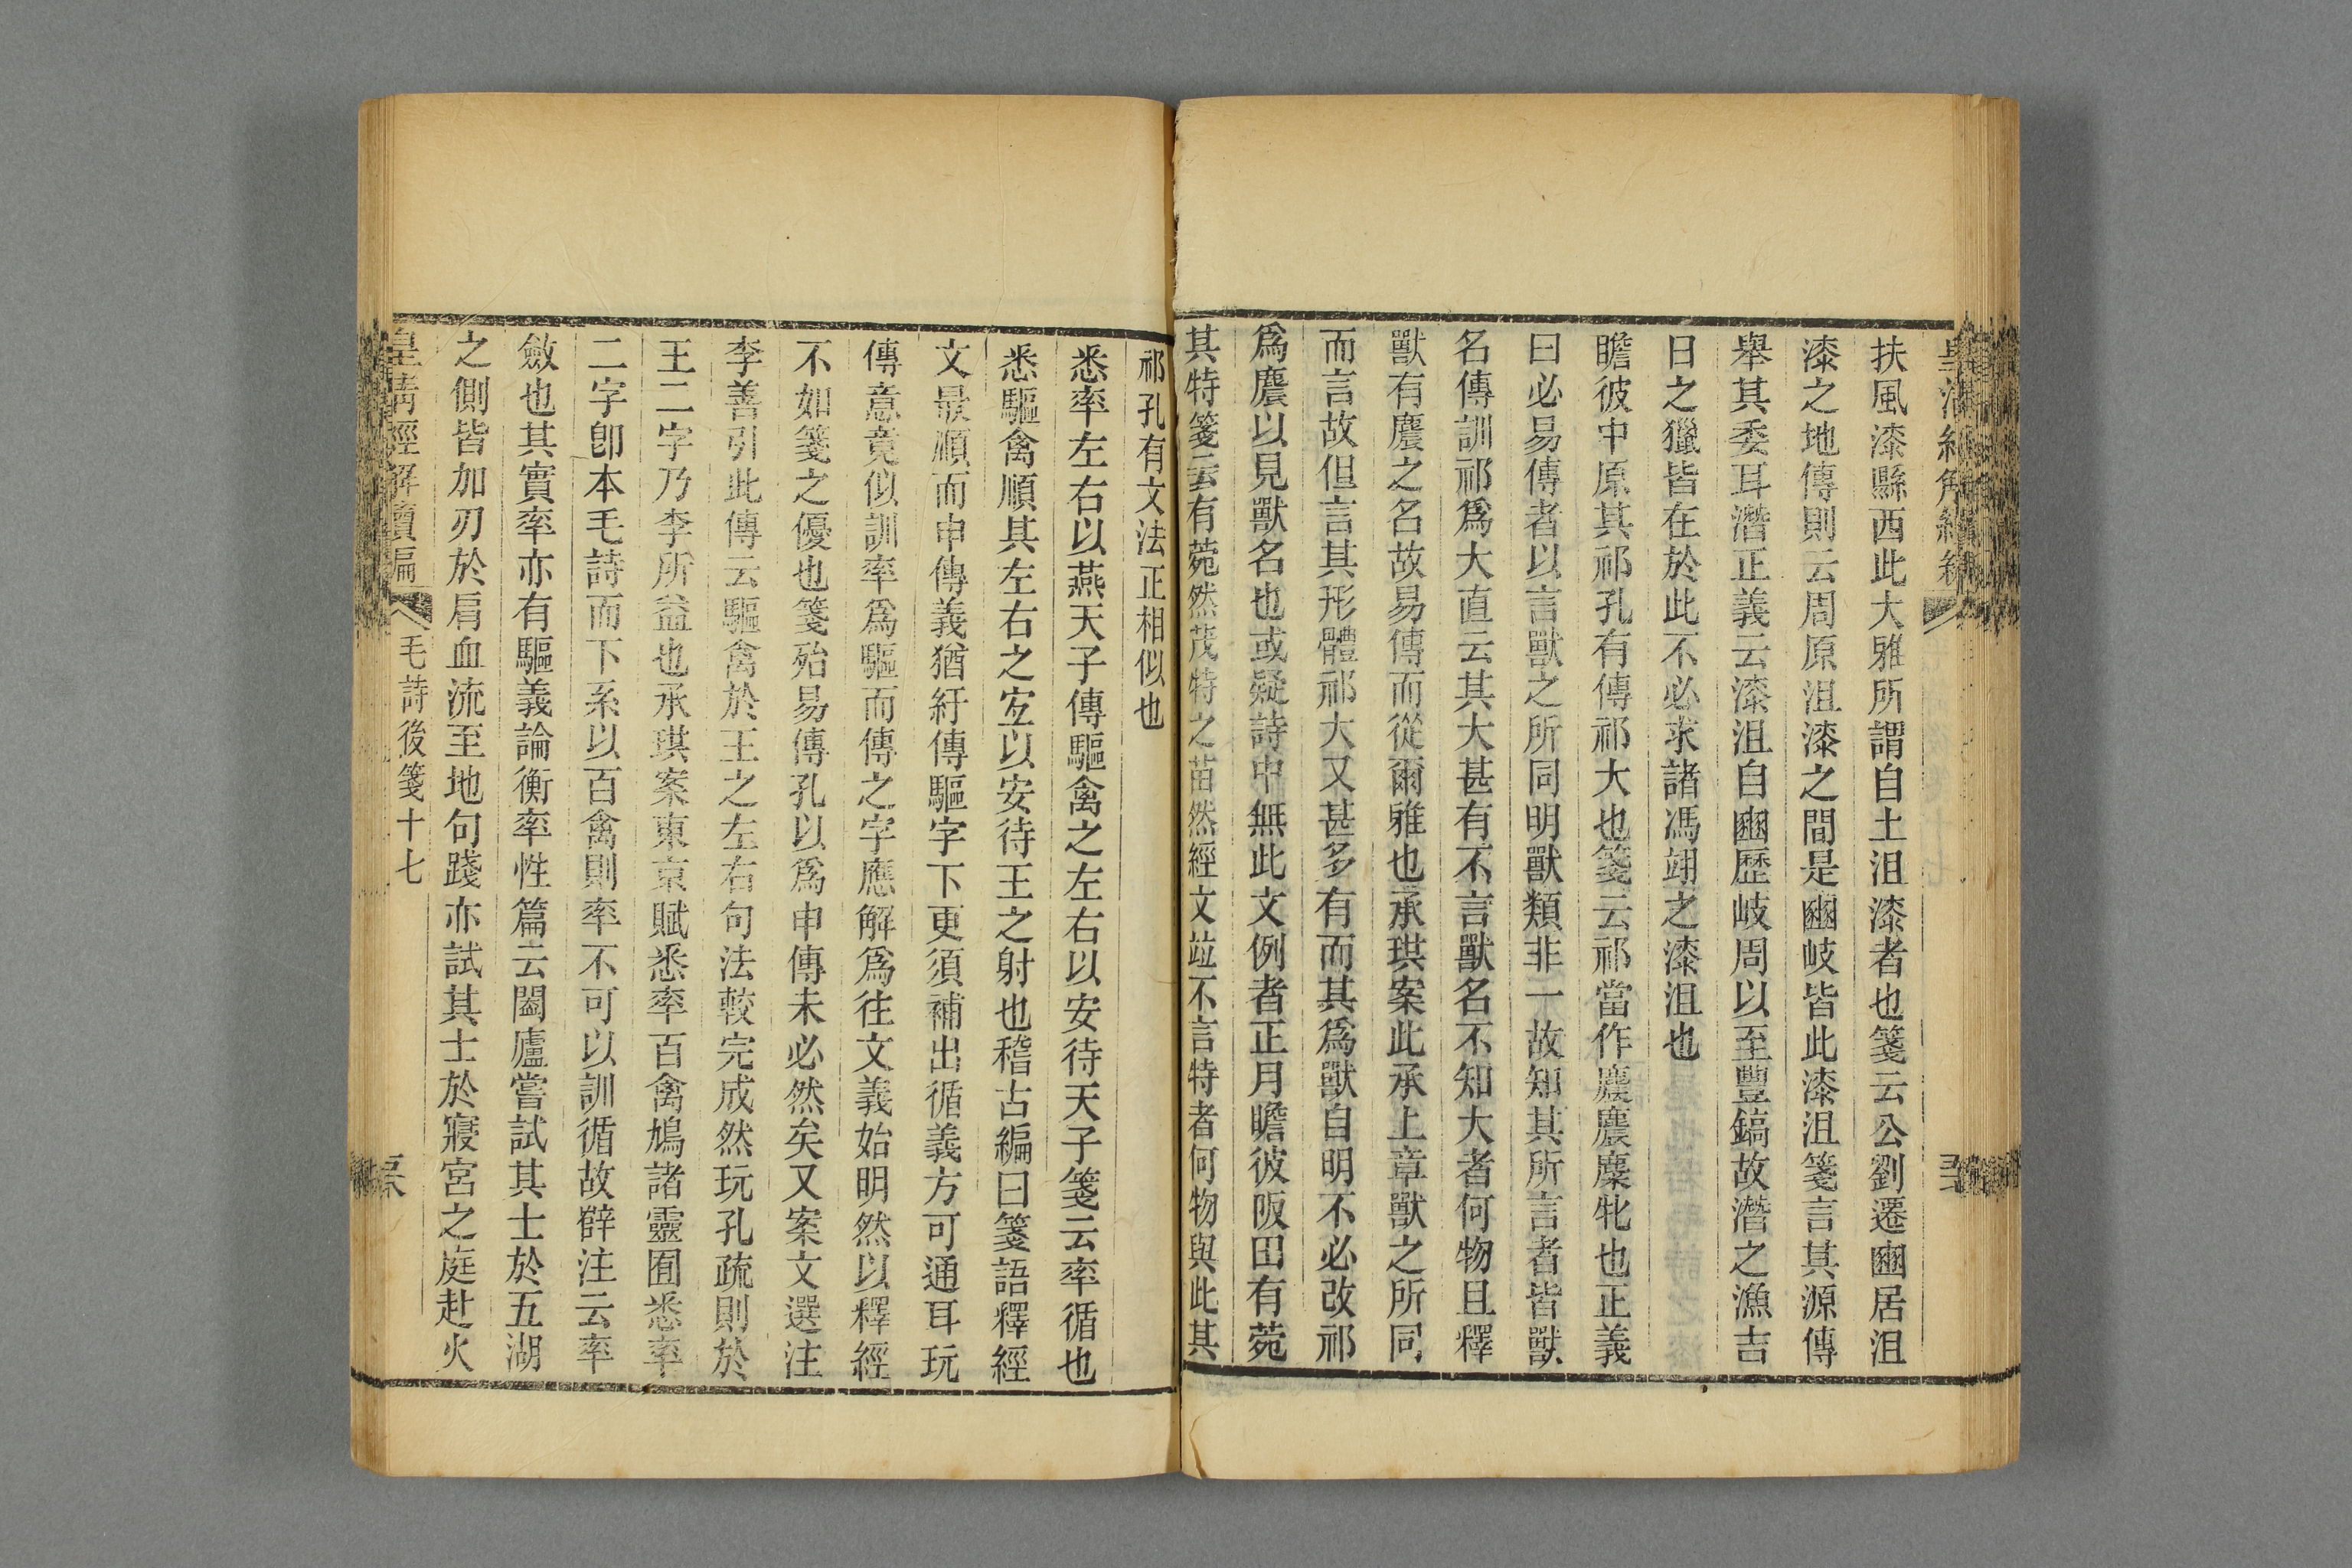 扶風漆縣西此大雅所謂自土沮漆者也箋云公劉遷豳居沮
漆之地傳則云周原沮漆之間是豳岐皆此漆沮箋言其源傳
舉其委耳潛正義云漆沮自豳歷岐周以至豐鎬故潛之漁吉
日之獵皆在於此不必求諸馮翊之漆沮也
瞻彼中原其祁孔有傳祁大也箋云祁當作麎麎麋牝也正義
曰必易傳者以言獸之所同明獸類非一故知其所言者皆獸
名傳訓祁爲大直云其大甚有不言獸名不知大者何物且釋
獸有麎之名故易傳而從爾雅也承珙案此承上章獸之所同
而言故但言其形體祁大又甚多有而其爲獸自明不必改祁
爲麎以見獸名也或疑詩中無此文例者正月瞻彼阪田有菀
其特箋云有菀然茂特之苗然經文竝不言特者何物與此其
祁孔有文法正相似也
悉率左右以燕天子傳驅禽之左右以安待天子箋云率循也
悉驅禽順其左右之宐以安待王之射也稽古編曰箋語釋經
文最順而申傳義猶紆傳驅字下更須補出循義方可通耳玩
傳意竟似訓率爲驅而傳之字應解爲往文義始明然以釋經
不如箋之優也箋殆易傳孔以爲申傳未必然矣又案文選注
李善引此傳云驅禽於王之左右句法較完成然玩孔疏則於
王二字乃李所益也承珙案東京賦悉率百禽鳩諸靈囿悉率
二字卽本毛詩而下系以百禽則率不可以訓循故薛注云率
斂也其實率亦有驅義論衡率性篇云闔廬嘗試其士於五湖
之側皆加刃於肩血流至地句踐亦試其士於寢宮之庭赴火
皇清經解續編
毛詩後箋十七